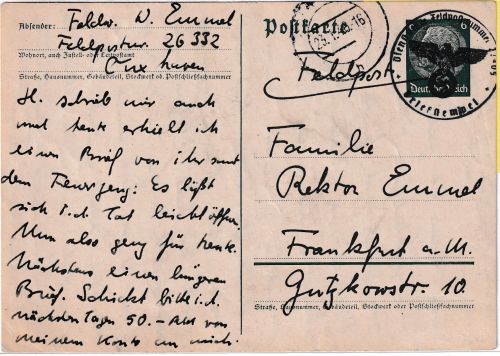 Absender: Feldw. W. Emmel
Feldpostnr. 26332
Wohnort, auch Zustell- od. Leitpostamt
Cuxhaven
Straße, Hausnummer, Gebäudeteil, Stockwerk od. Postschließfachnummer
H. schrieb mir auch
und heute erhielt ich
einen Brief von ihr mit
dem Feuerzeug: Es läßt
sich i. d. Tat leicht öffnen.
Nun also genug für heute.
Nächstens einen längeren
Brief. Schickt bitte i. d.
nächsten Tagen 50.- von
meinem Konto an mich.
Postkarte
Feldpost
Deutsches Reich
Familie
Rektor Emmel
Frankfurt a. M.
Gutzkowstr. 10
Straße, Hausnummer, Gebäudeteil, Stockwerk oder Postschließfachnummer